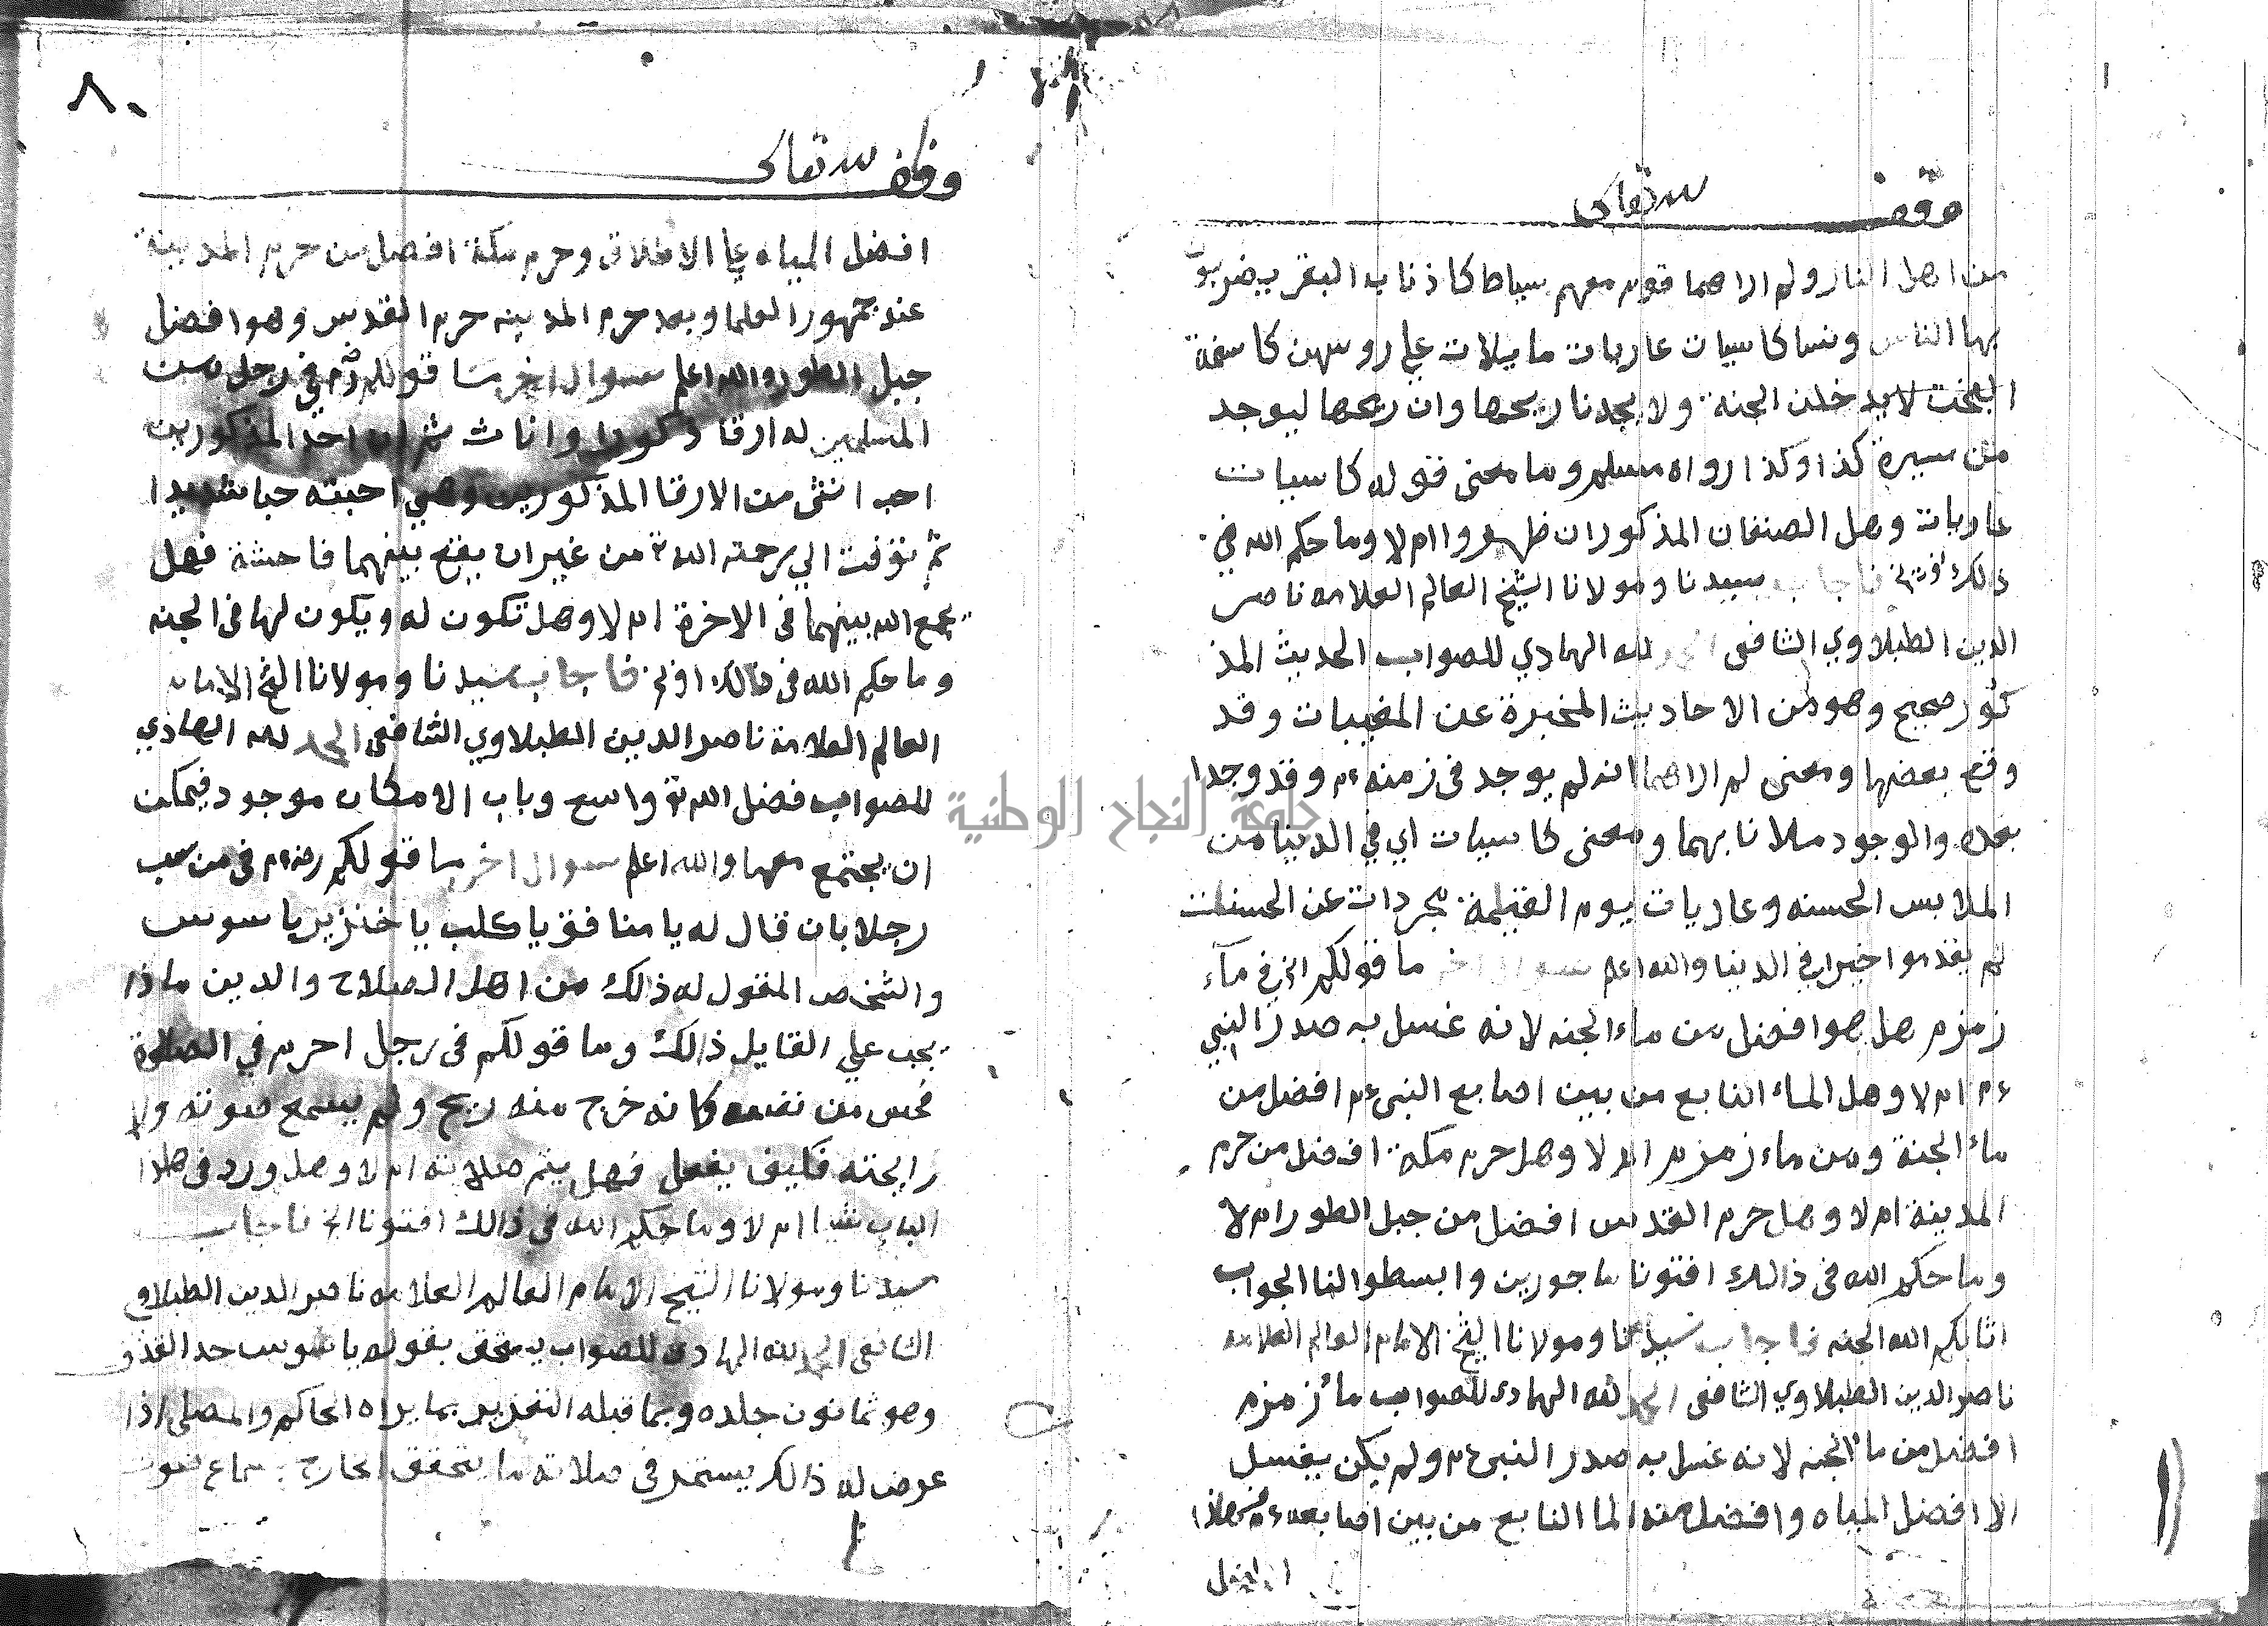 وقف لله تعالى
من اهل النار ولم اراهما قوم معهم سياط كاذناب البقر يضربون
بها الناس ونسا كاسيات عاريات مايلات على روسهن كاسنمة
البخت لا يدخلن الجنة ولا يجدنا ريحها وان ريحها ليوجد
من سيرة كذا وكذا رواه مسلم وما معنى قوله كاسيات
عاريات وهل الصنفان المذكوران ظهروا ام لا وما حكم الله في
ذالك افتونا فاجاب سيدنا ومولانا الشيخ العالم العلامه ناصر
الدين الطبلاوي الشافعى الحمد لله الهادي للصواب الحديث المذ
كور صحيح وهو من الاحاديث المخبرة عن المغيبات وقد
وقع بعضها ومعنى لم اراهما انه لم يوجد فى زمنه ءم وقد وجدا
بعده والوجود ملانا بهما ومعنى كاسيات اي في الدينا من
الملابس الحسنه وعاريات يوم القيمة مجردات عن الحسنات
لم يقدموا خيرا في الدينا والله اعلم سوال اخر ما قولكم الخ في مآء
زمزم هل هو افضل من ماء الجنه لانه غسل به صدر النبي
ءم ام لا وهل الماء النابع من بين اصابع النبى ءم افضل من
ماء الجنة ومن ماء زمزم ام لا وهل حرم مكة افضل من حرم
المدينة ام لا وهل حرم القدس افضل من جبل الطور ام لا
وما حكم الله فى ذالك افتونا ماجورين وابسطوا لنا الجواب
اثابكم الله الجنه فاجاب سيدنا ومولانا الشيخ الامام العالم العلامه
ناصر الدين الطبلاوي الشافعى الحمد لله الهادى للصواب ماء زمزم
افضل من ماء الجنه لانه غسل به صدر النبى ءم ولم يكن يغسل
الا افضل المياه وافضل منه الما النابع من بين اصابعه ءم فهذا
افضل
٨٠
وقف لله تعالى
افضل المياه على الاطلاق وحرم مكة افضل من حرم المدينة
عند جمهور العلما وبعد حرم المدينه حرم القدس وهو افضل
جبل الطور والله اعلم سوال اخر ما قولكم في رجل من
المسلمين له ارقا ذكورا واناث ثم ان احد المذكورين
احب انثى من الارقا المذكورين وهي احبته حبا شديدا
ثم توفت الي رحمة الله تع من غير ان يقع بينهما فاحشة فهل
يجمع الله بينهما فى الاخرة ام لا وهل تكون له ويكون لها فى الجنه
وما حكم الله فى ذالك فاجاب سيدنا ومولانا الشيخ الامام
العالم العلامة ناصر الدين الطبلاوي الشافعى الحمد لله الهادي
للصواب فضل الله تع واسع وباب الامكان موجود فيمكن
ان يجتمع معها والله اعلم سوال اخر ما قولكم رضءم فى من سب
رجلا بان قال له يا منافق يا كلب يا خنزير يا
والشخص المقول له ذالك من اهل الصلاح والدين ماذا
يجب علي القايل ذالك وما قولكم فى رجل احرم في الصلوة
فحس من نفسه وكانه خرج منه ريح ولم يسمع صوته ولا
رايحته فكيف يفعل فهل يتم صلاته ام لا وهل ورد فى هذا
الباب شيا ام لا وما حكم الله في ذالك افتونا الخ فاجاب
سيدنا ومولانا الشيخ الامام العالم العلامه ناصر الدين الطبلاوي
الشافعى الحمد لله الهادى للصواب يستحق بقوله حد القذف
وهو ثمانون جلده وبما قبله التعزير بما يراه الحاكم والمصلى اذا
عرض له ذالك يستمر فى صلاته ما يتحقق الخارج بسماع صوت
جامعة النجاح الوطنية